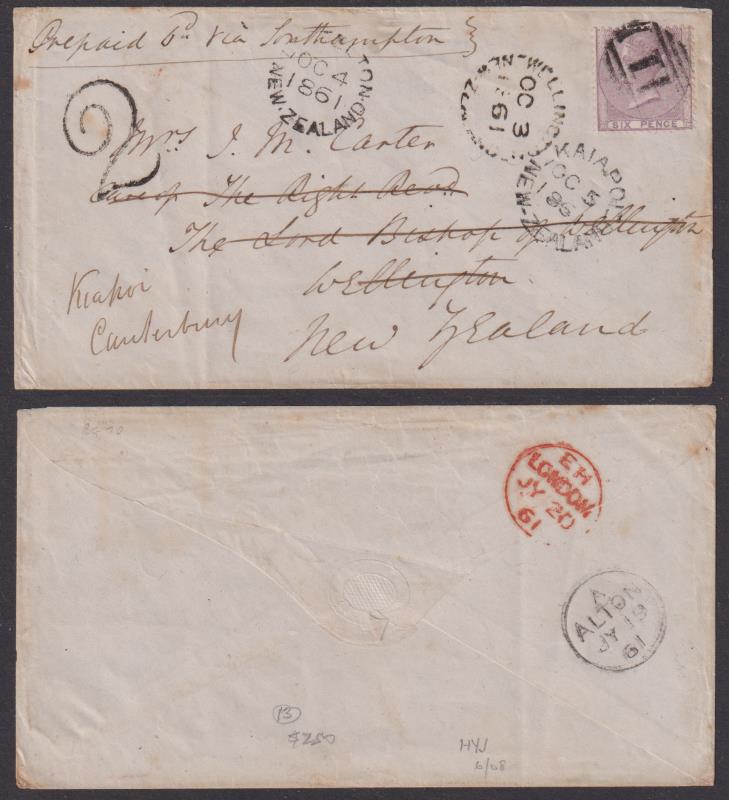 Prepaid 6d via Southampton
OC 4
1861
NEW-ZEALAND
WELLINGTON
OC 3
61
NEW-ZEALAND
KAIAPOI
OC 5
186
NEW-ZEALAND
SIX PENCE
2
Mrs J. M. Carter
Care of The Right Revd
The Lord Bishop of Wellington
Wellington
New Zealand
Kiapoi
Canterbury
EH
LONDON
JY 20
61
A
ALTON
JY 19
61
B
$250
HYJ
6/08